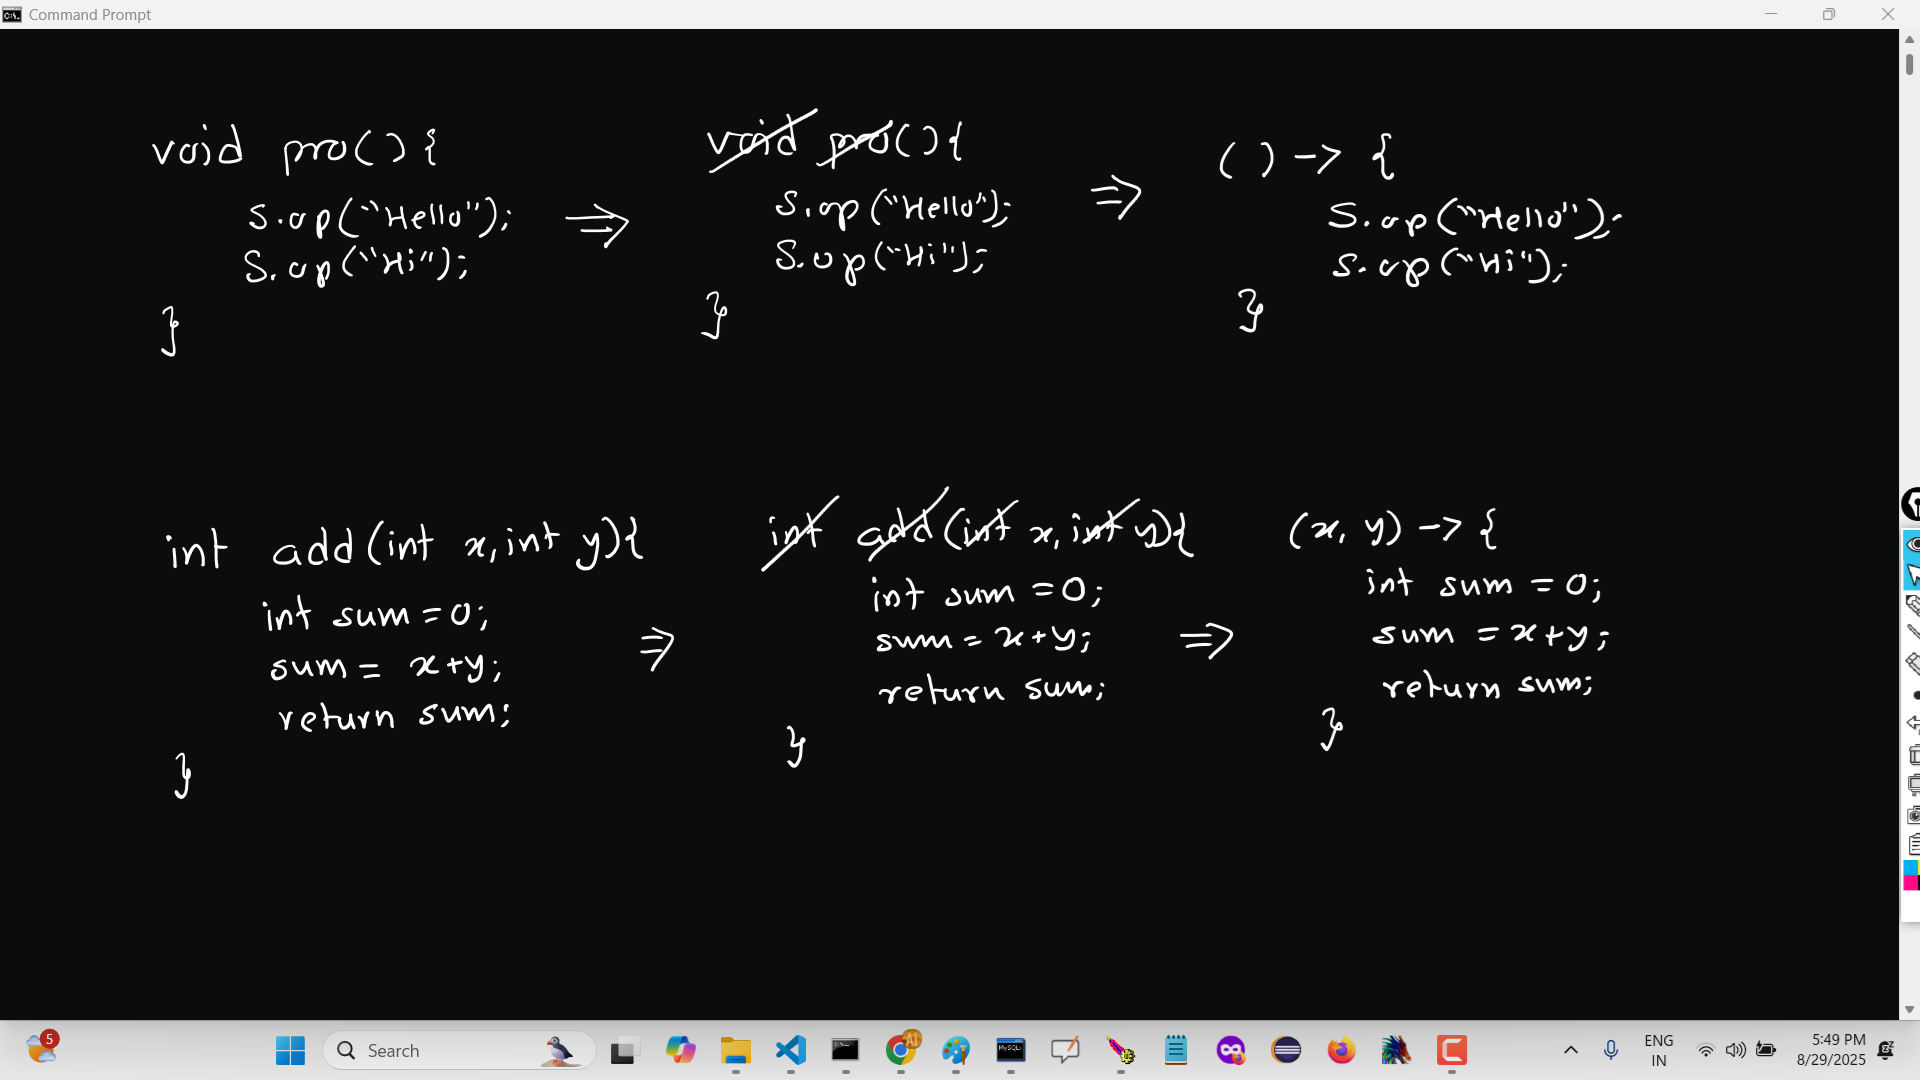 Command Prompt
void pro(){
S.op("Hello");
S.op("Hi");
}
⇒
void pro(){
S.op("Hello");
S.op("Hi");
}
⇒
( ) -> {
S.op("Hello");
S.op("Hi");
}
int add(int x, int y){
int sum = 0;
sum = x+y;
return sum;
}
⇒
int add(int x, int y){
int sum = 0;
sum = x+y;
return sum;
}
⇒
(x, y) -> {
int sum = 0;
sum = x+y;
return sum;
}
5
Search
AI
MySQL
ENG
IN
5:49 PM
8/29/2025